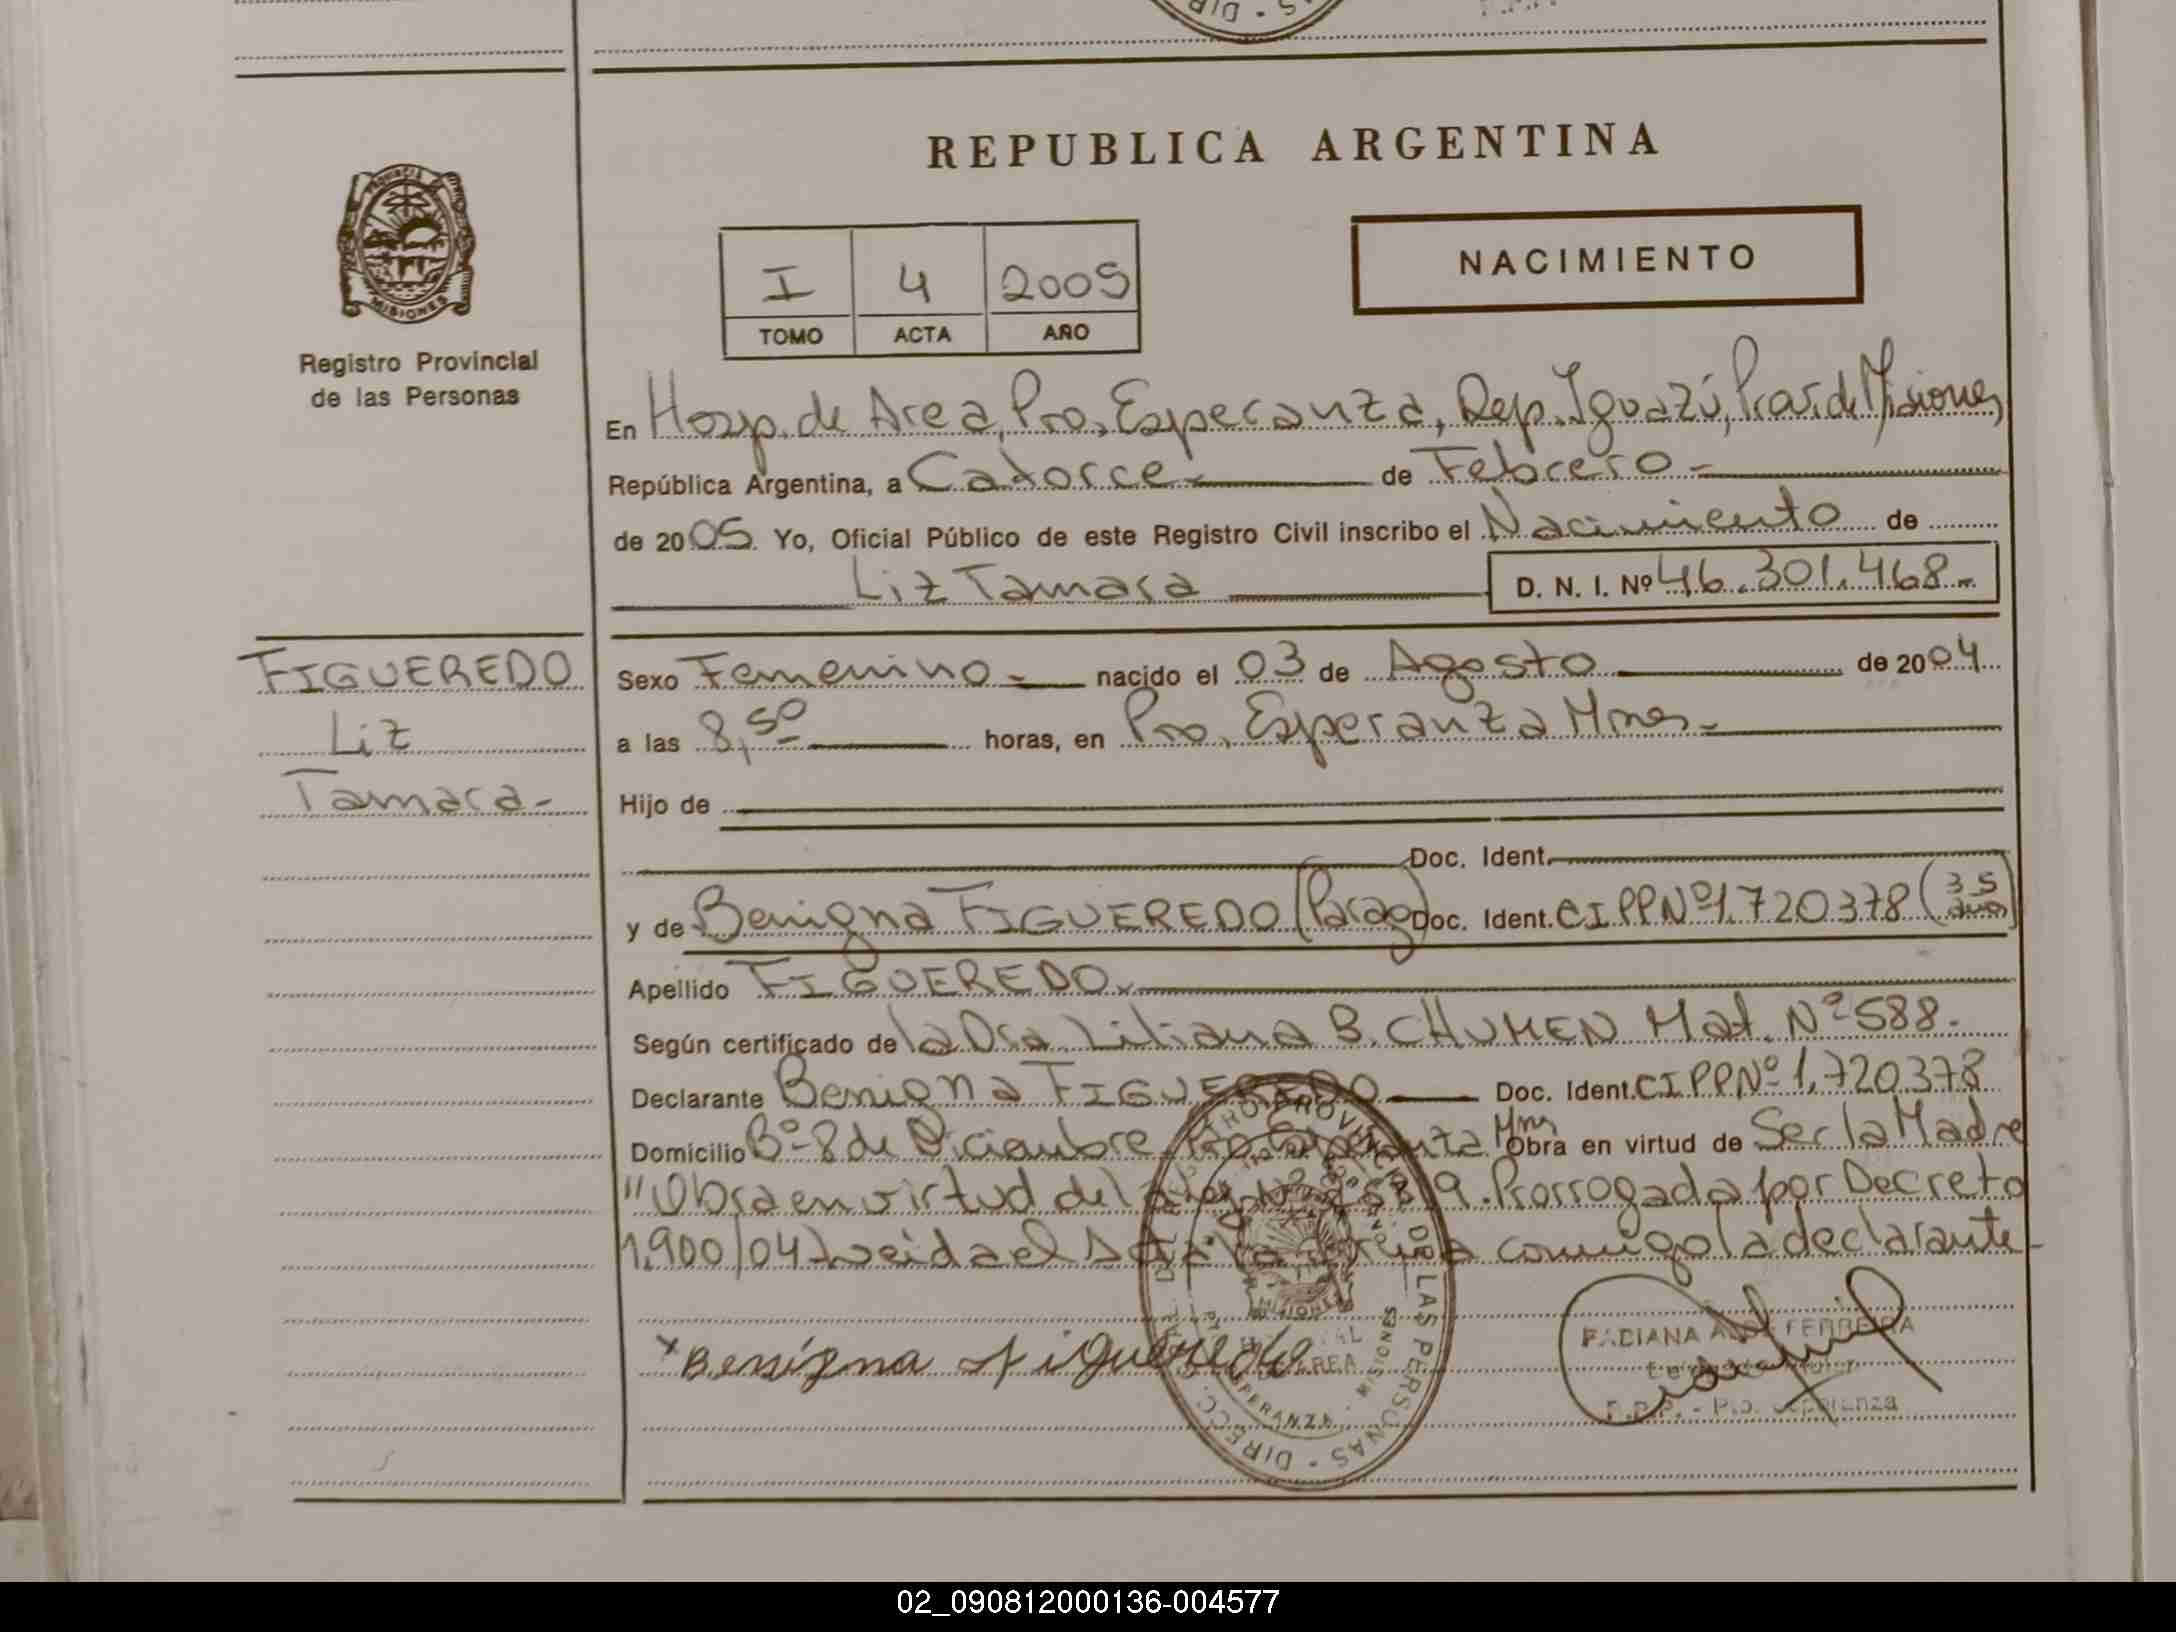 REPUBLICA ARGENTINA
MISIONES
Registro Provincial
de las Personas
I 4 2005
TOMO ACTA AÑO
NACIMIENTO
En Hosp. de Area, Pto. Esperanza, Dep. Iguazú, Prov. de Misiones
República Argentina, a Catorce.- de Febrero.-
de 2005. Yo, Oficial Público de este Registro Civil inscribo el Nacimiento de
Liz Tamara D. N. I. Nº 46.301.468.-
FIGUEREDO
Liz
Tamara-
Sexo Femenino.- nacido el 03 de Agosto de 2004
a las 8,50 horas, en Pto. Esperanza Mnes.-
Hijo de
Doc. Ident.
y de Benigna FIGUEREDO (Parag) Doc. Ident. CIPPNº1.720378 (35 años)
Apellido FIGUEREDO.
Según certificado de la Dra. Liliana B. CHUMEN Mat. Nº 588.
Declarante Benigna FIGUEREDO Doc. Ident. CIPPNº 1,720378
Domicilio Bº 8 de Diciembre Pto Esperanza Mnes Obra en virtud de Ser la Madre
"Obra en virtud de la Prorrogada por Decreto
1.900/04 Leida el Acta conmigo la declarante
x Benigna Figueredo
FERREIRA
R.P.P. - Pto. Esperanza
DE LAS PERSONAS - DIRECC.
ESPERANZA - MISIONES
02_090812000136-004577